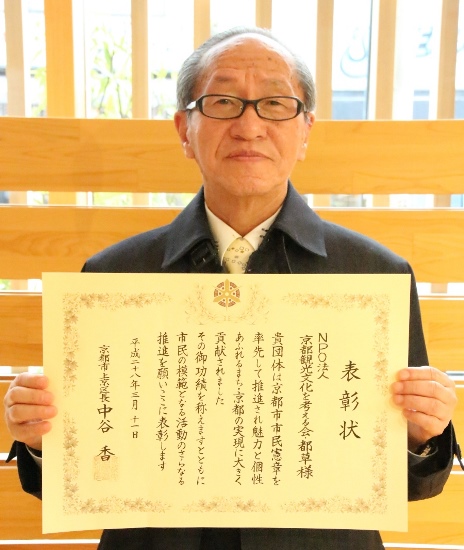 表彰状
NPO法人
京都観光文化を考える会・都草様
貴団体は京都市市民憲章を
率先して推進され魅力と個性
あふれるまち・京都の実現に大きく
貢献されました
その御功績を称えますとともに
市民の模範となる活動のさらなる
推進を願いここに表彰します
平成二十八年三月十一日
京都市上京区長 中谷 香